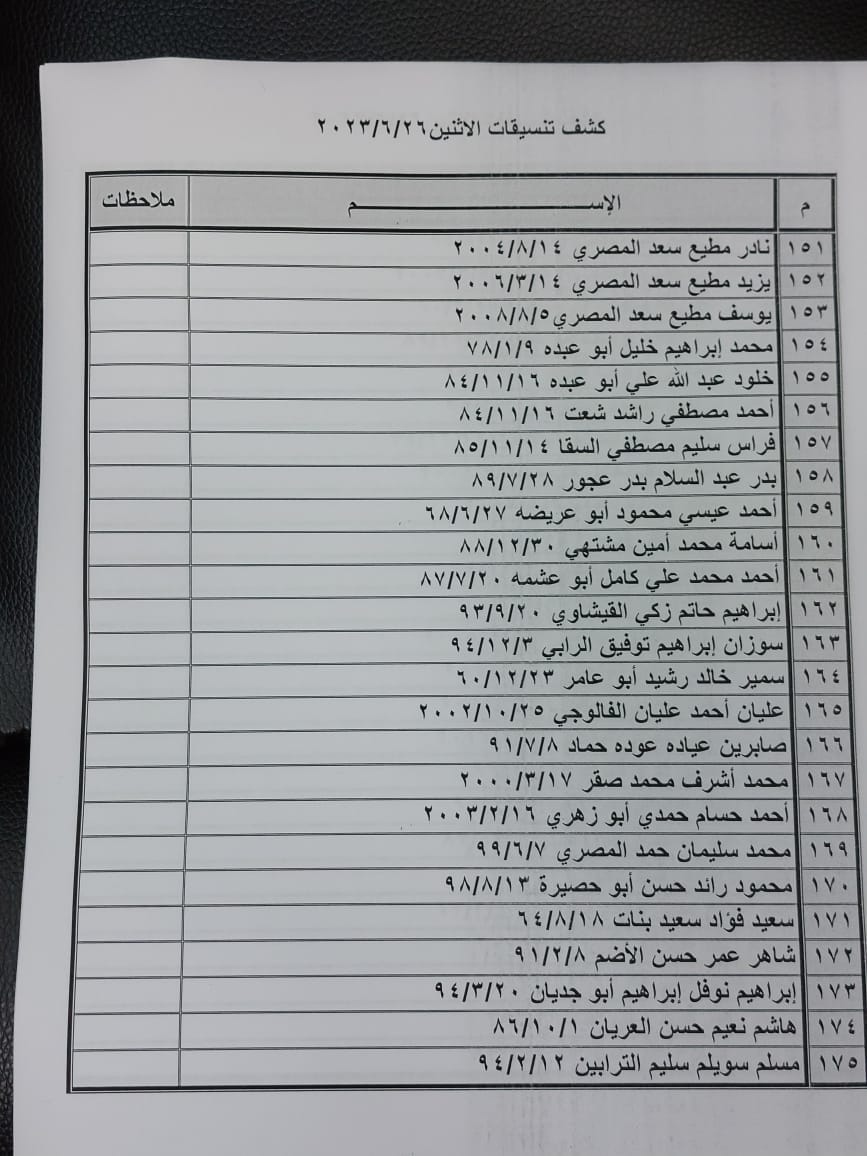 كشف تنسيقات الاثنين ٢٠٢٣/٦/٢٦
م الإســـــــــــــــــــــــــــم ملاحظات
١٥١ نادر مطيع سعد المصري ٢٠٠٤/٨/١٤
١٥٢ يزيد مطيع سعد المصري ٢٠٠٦/٣/١٤
١٥٣ يوسف مطيع سعد المصري ٢٠٠٨/٨/٥
١٥٤ محمد إبراهيم خليل أبو عبده ٧٨/١/٩
١٥٥ خلود عبد الله علي أبو عبده ٨٤/١١/١٦
١٥٦ أحمد مصطفي راشد شعت ٨٤/١١/١٦
١٥٧ فراس سليم مصطفي السقا ٨٥/١١/١٤
١٥٨ بدر عبد السلام بدر عجور ٨٩/٧/٢٨
١٥٩ أحمد عيسي محمود أبو عريضه ٦٨/٦/٢٧
١٦٠ أسامة محمد أمين مشتهي ٨٨/١٢/٣٠
١٦١ أحمد محمد علي كامل أبو عشمه ٨٧/٧/٢٠
١٦٢ إبراهيم حاتم زكي القيشاوي ٩٣/٩/٢٠
١٦٣ سوزان إبراهيم توفيق الرابي ٩٤/١٢/٣
١٦٤ سمير خالد رشيد أبو عامر ٦٠/١٢/٢٣
١٦٥ عليان أحمد عليان الفالوجي ٢٠٠٢/١٠/٢٥
١٦٦ صابرين عياده عوده حماد ٩١/٧/٨
١٦٧ محمد أشرف محمد صقر ٢٠٠٠/٣/١٧
١٦٨ أحمد حسام حمدي أبو زهري ٢٠٠٣/٢/١٦
١٦٩ محمد سليمان حمد المصري ٩٩/٦/٧
١٧٠ محمود رائد حسن أبو حصيرة ٩٨/٨/١٣
١٧١ سعيد فؤاد سعيد بنات ٦٤/٨/١٨
١٧٢ شاهر عمر حسن الأضم ٩١/٢/٨
١٧٣ إبراهيم نوفل إبراهيم أبو جديان ٩٤/٣/٢٠
١٧٤ هاشم نعيم حسن العريان ٨٦/١٠/١
١٧٥ مسلم سويلم سليم الترابين ٩٤/٢/١٢